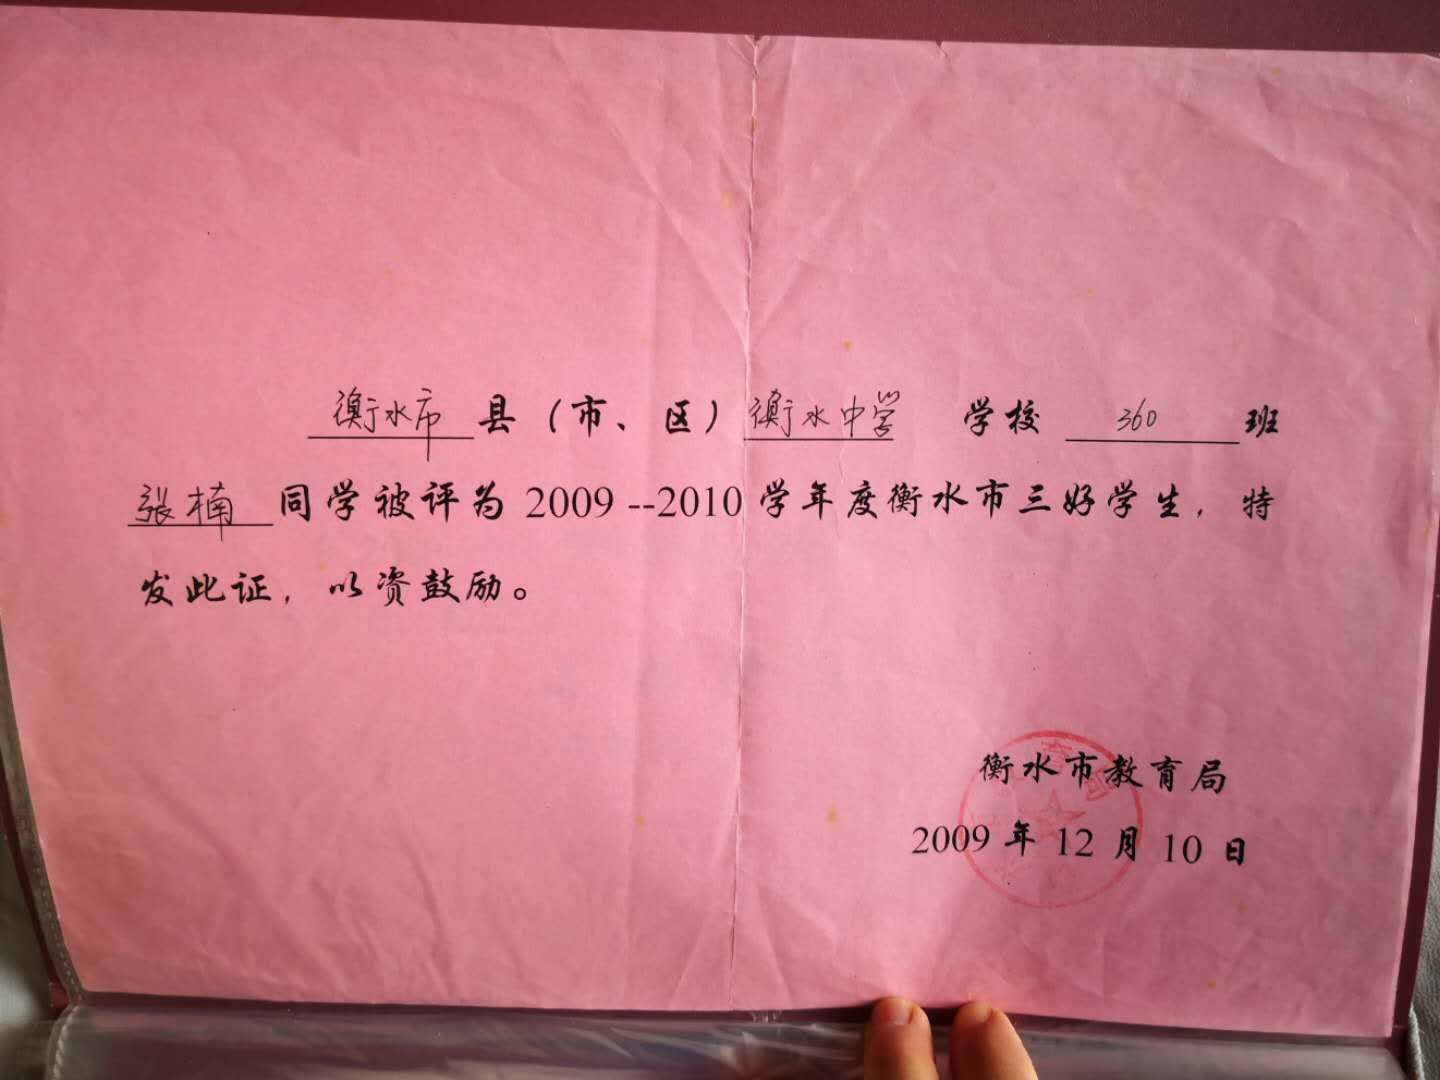 衡水市 县（市、区）衡水中学 学校 360 班
张楠 同学被评为 2009 --2010 学年度衡水市三好学生，特
发此证，以资鼓励。
衡水市教育局
2009 年 12 月 10 日